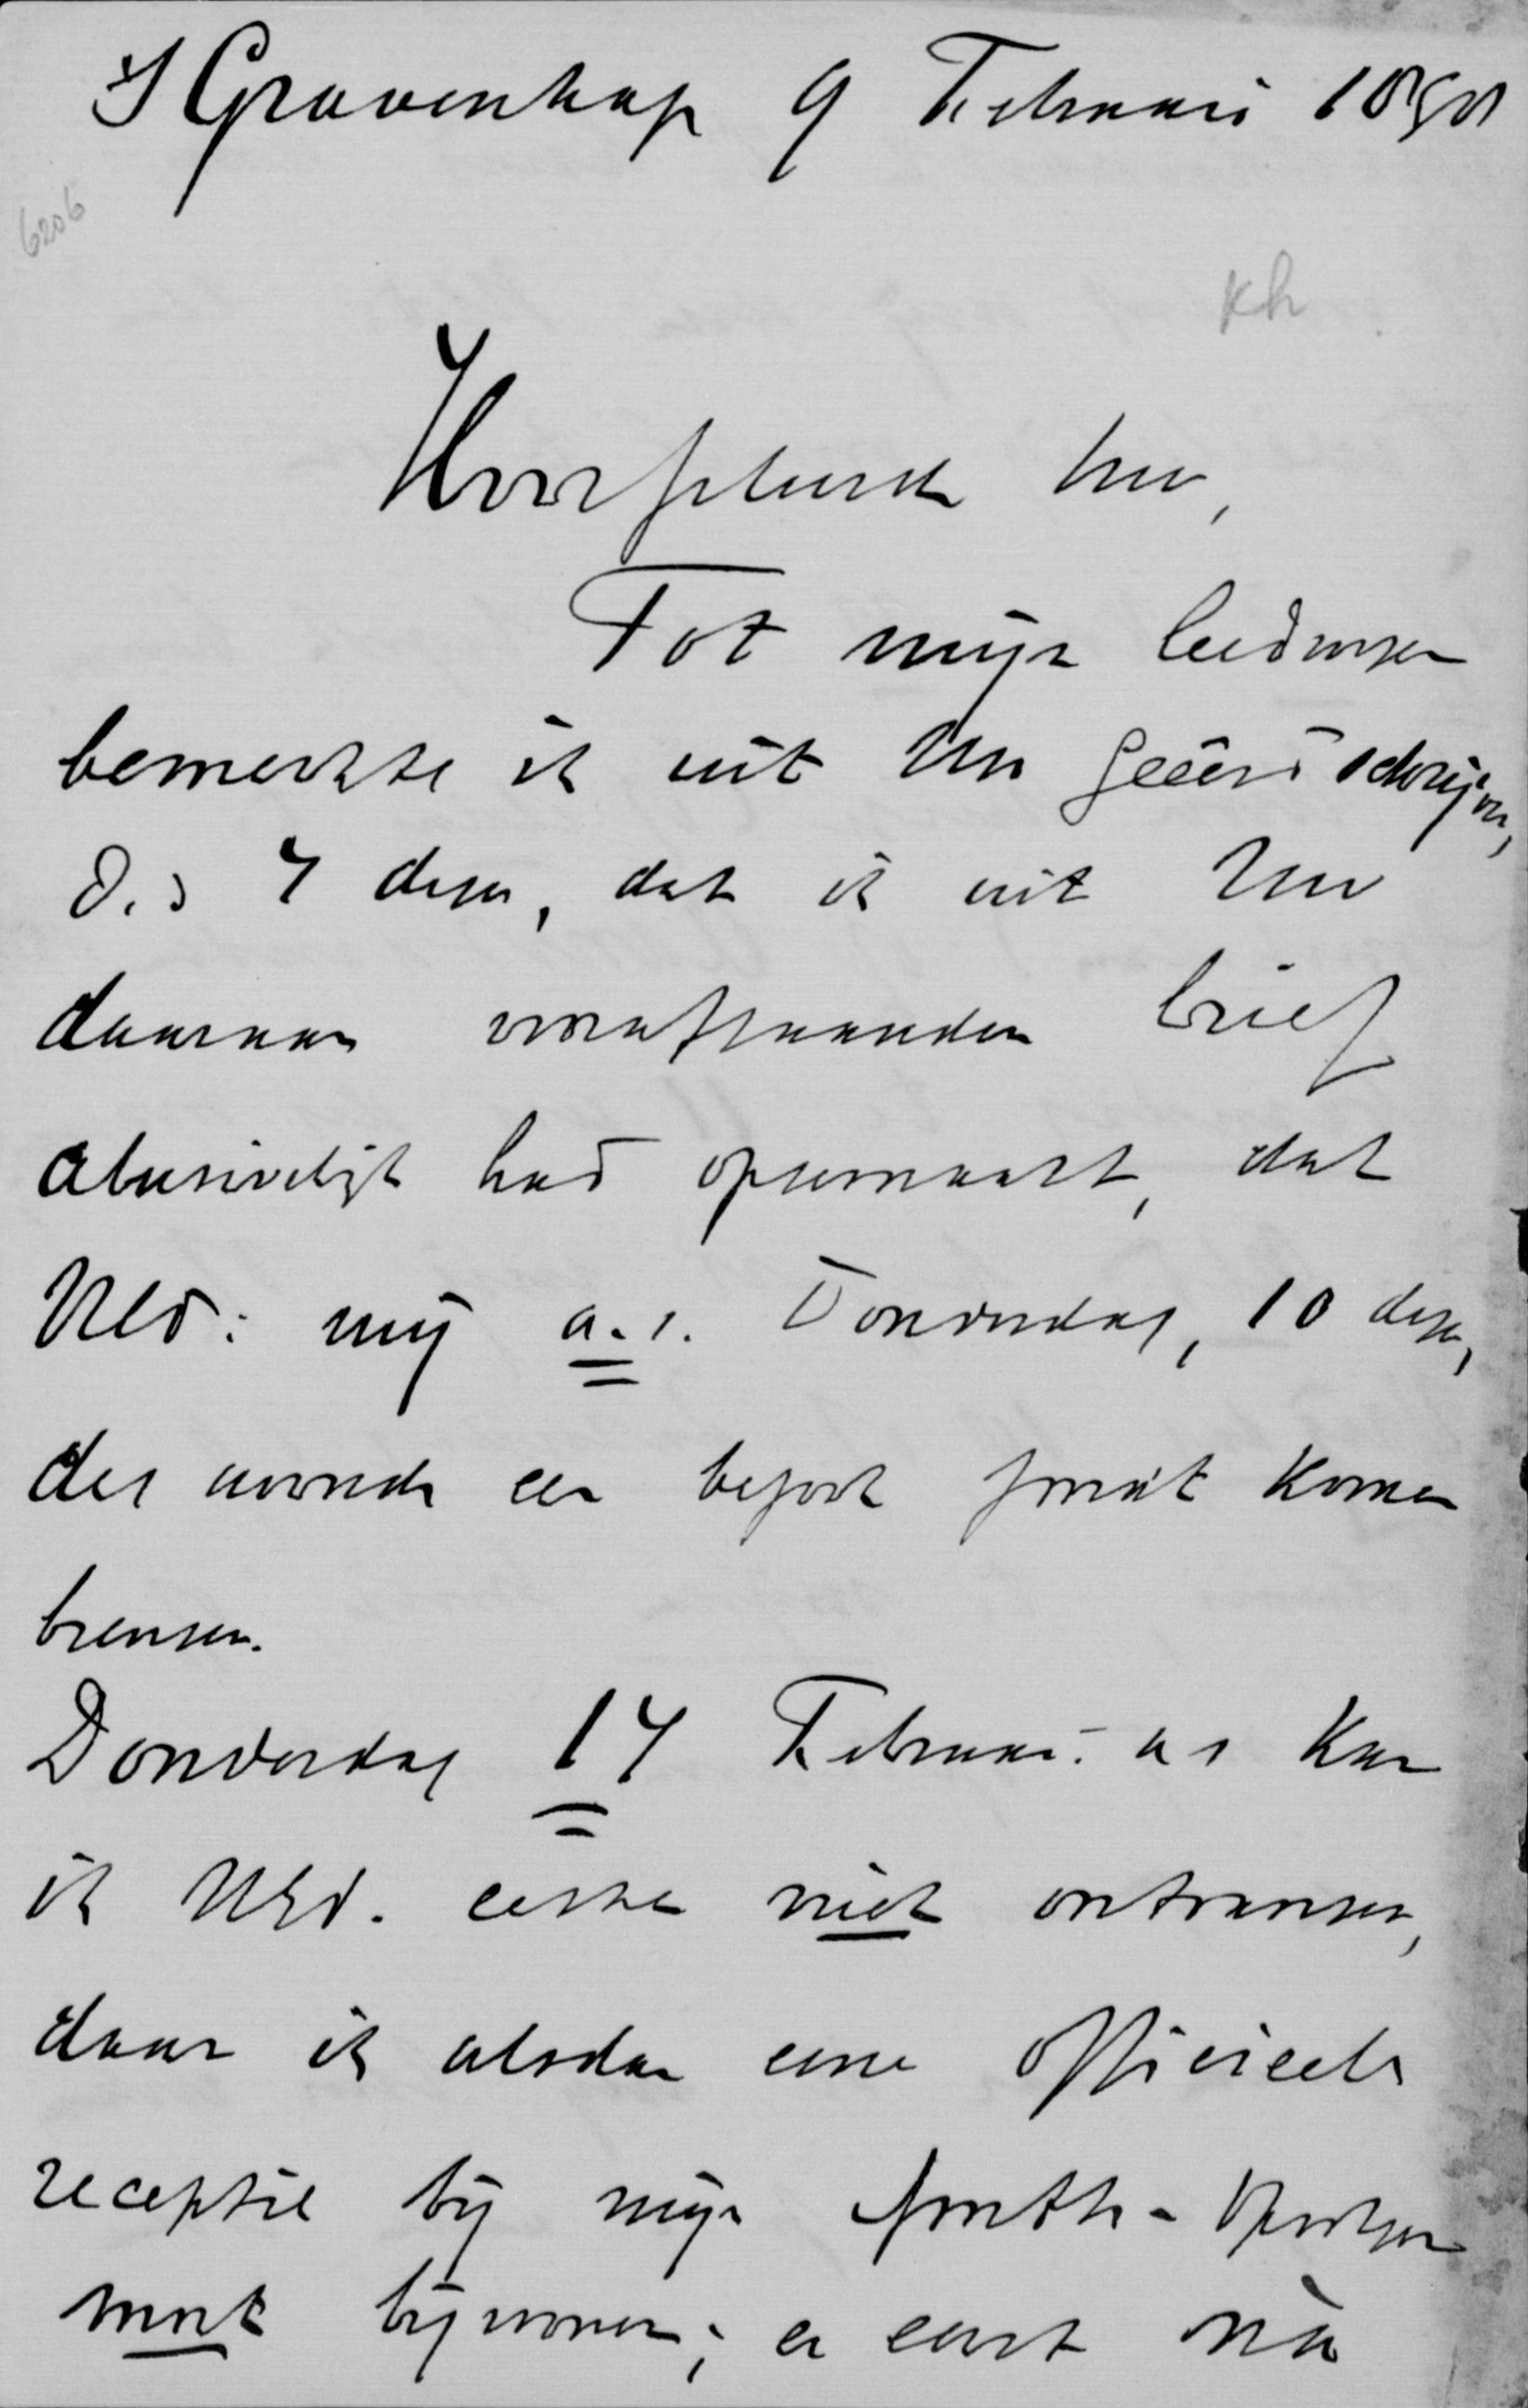 's Gravenhage 9 Februari 1898
6206
kh
Hooggeleerde Heer,
Tot mijn leedwezen
bemerkte ik uit Uw geëerd schrijven,
d.d 7 dezer, dat ik uit Uw
daaraan voorafgaanden brief
abusivelijk had opgemaakt, dat
UEd: mij a.s. Donderdag, 10 dezer,
des avonds een bezoek zoudt komen
brengen.
Donderdag 17 Februari as kan
ik UEd. echter niet ontvangen,
daar ik alsdan eene officieele
receptie bij mijn
moet bijwonen; en eerst na